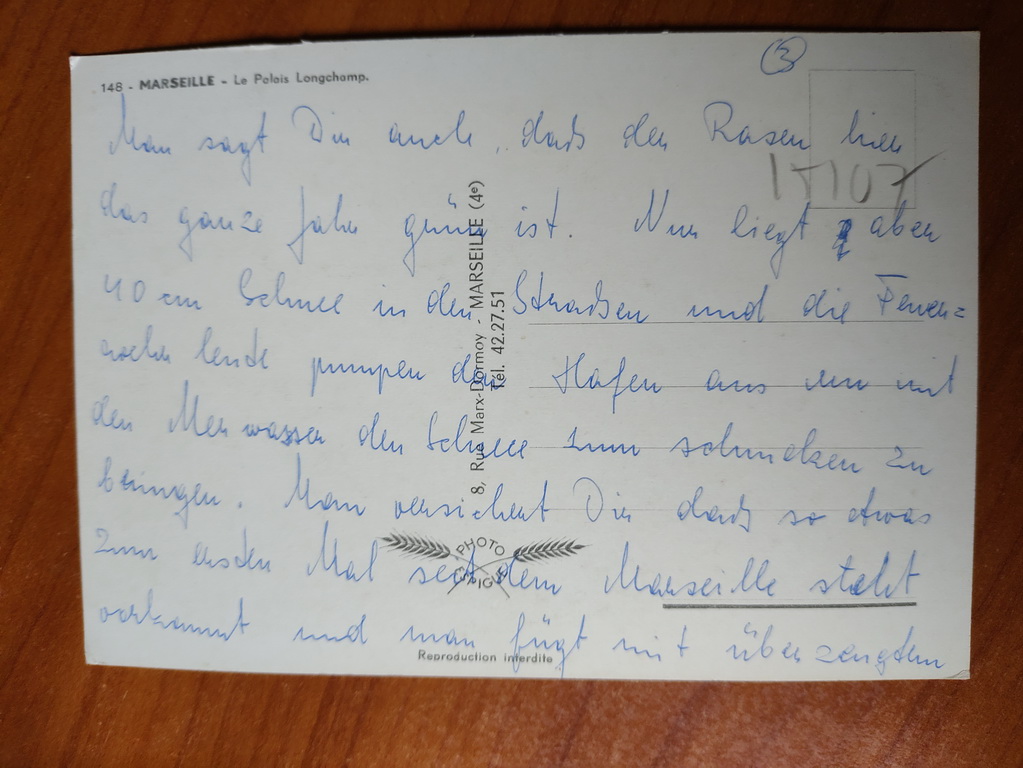 148 - MARSEILLE - Le Palais Longchamp.
3
Man sagt Dir auch, daß der Rasen hier
15107
das ganze Jahr grün ist. Nur liegt aber
40 cm Schnee in den Straßen und die Feuer=
wehr leute pumpen den Hafen aus um mit
den Meerwasser den Schnee zum schmelzen zu
bringen. Man versichert Dir daß so etwas
zum ersten Mal seit dem Marseille steht
vorkommt und man fügt mit überzeugtem
8, Rue Marx-Dormoy - MARSEILLE (4e)
Tél. 42.27.51
PHOTO
Reproduction interdite